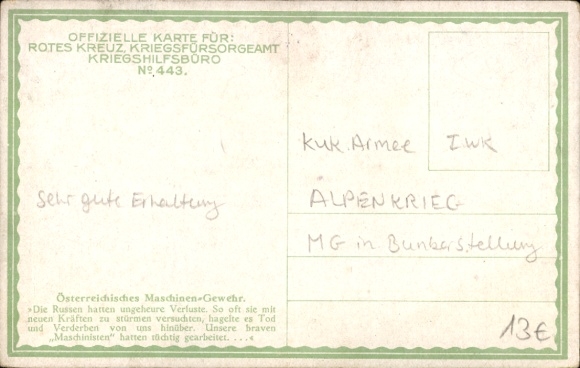 OFFIZIELLE KARTE FÜR:
ROTES KREUZ, KRIEGSFÜRSORGEAMT
KRIEGSHILFSBÜRO
Nº 443.
KuK. Armee I.WK
Sehr gute Erhaltung
ALPENKRIEG
MG in Bunkerstellung
Österreichisches Maschinen-Gewehr.
»Die Russen hatten ungeheure Verluste. So oft sie mit
neuen Kräften zu stürmen versuchten, hagelte es Tod
und Verderben von uns hinüber. Unsere braven
„Maschinisten" hatten tüchtig gearbeitet. . . .«
13€